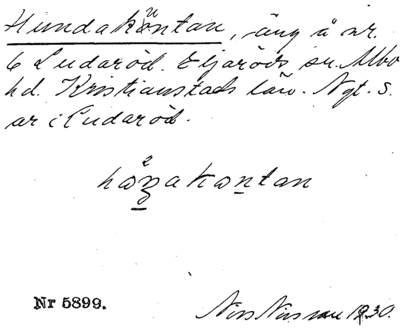 Hundakuntan, äng å nr.
6 Ludaröd. Eljaröds sn. Albo
hd. Kristianstads län. Ngt. s.
ar i Ludaröd.
Nr 5899.
Nils Nilsson 1930.